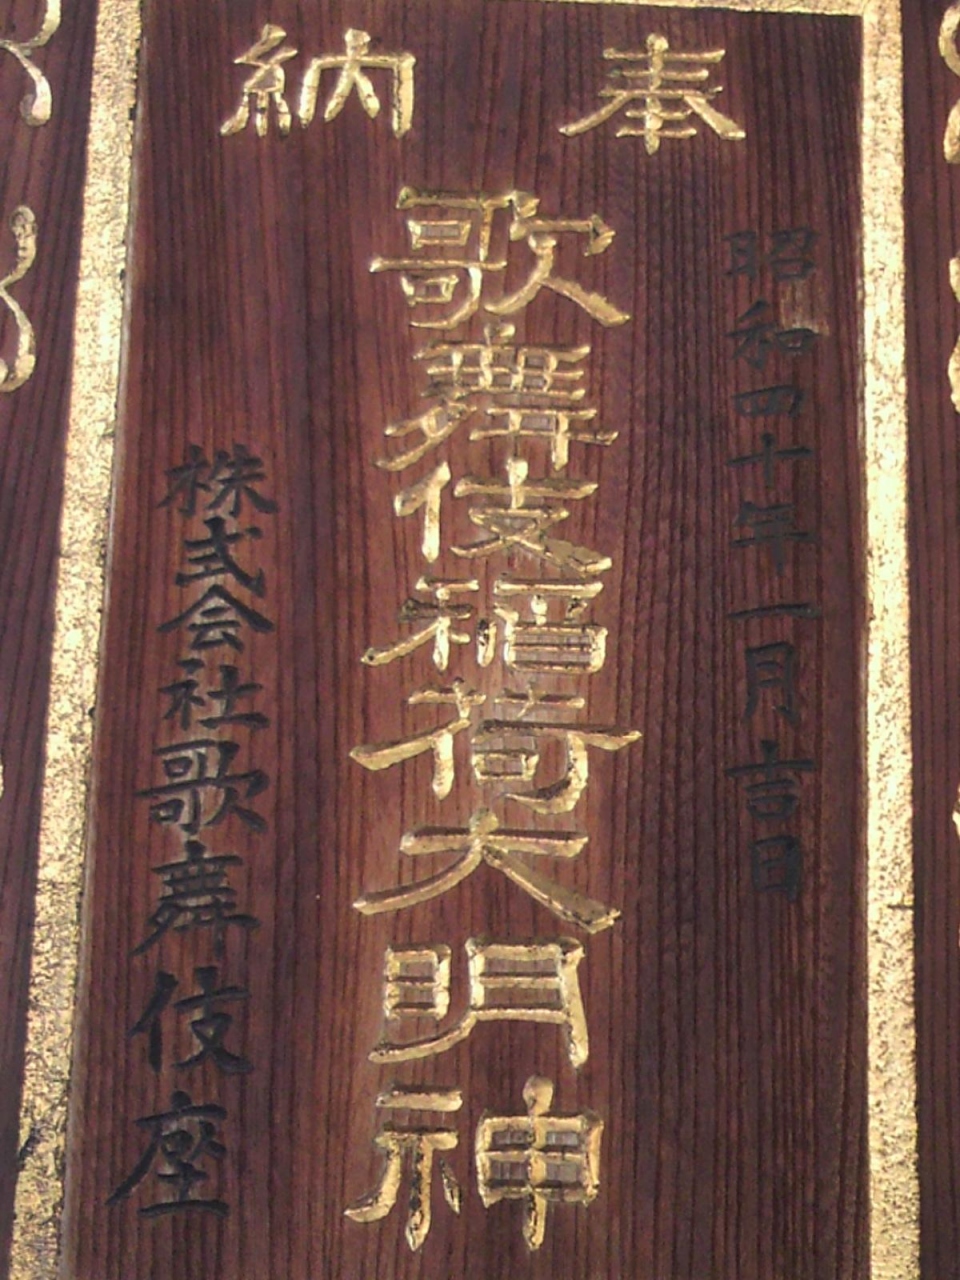 奉納
昭和四十年一月吉日
歌舞伎稲荷大明神
株式会社歌舞伎座